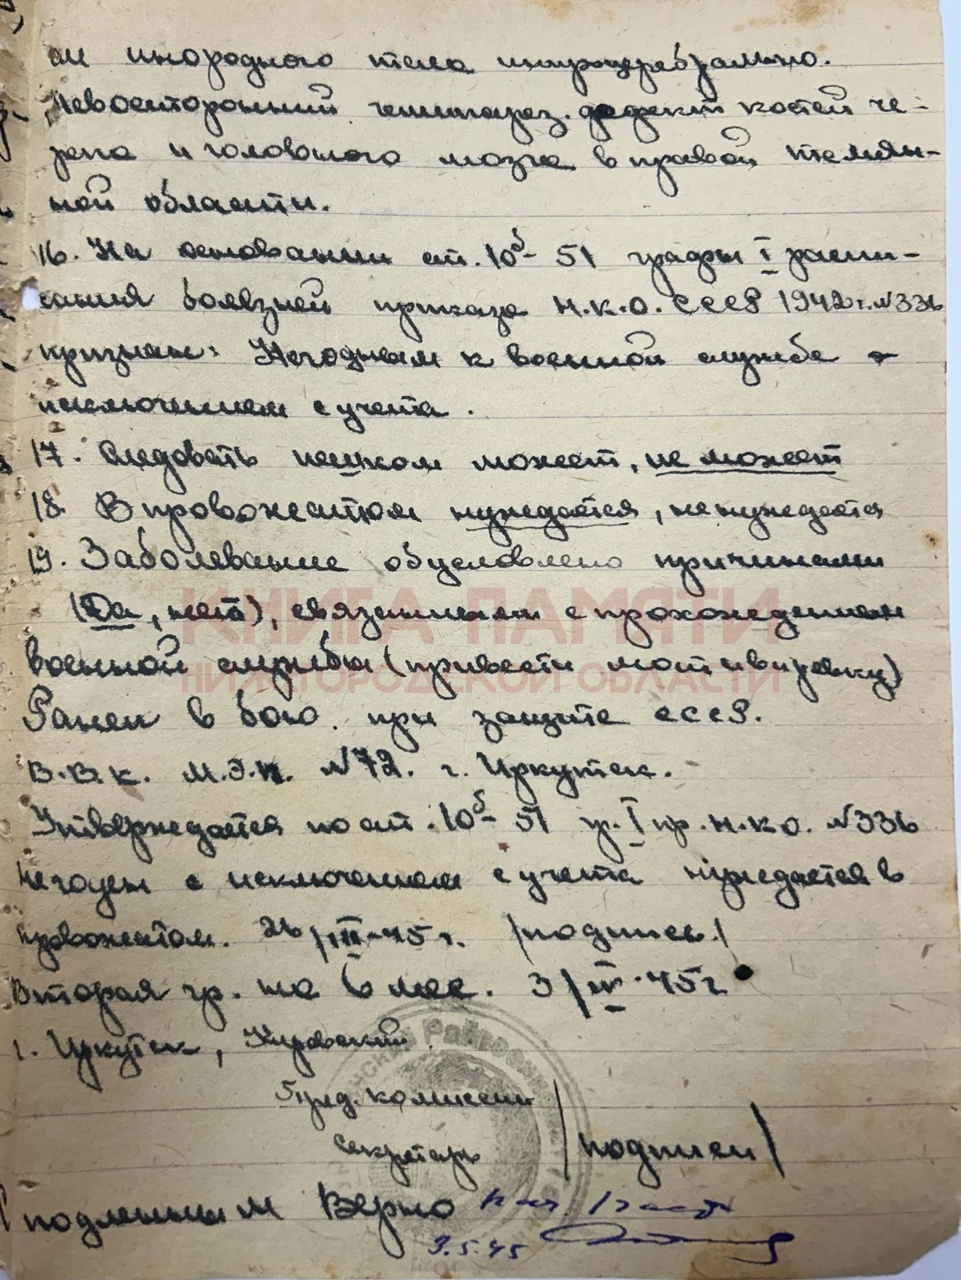 ем инородного тела интрацеребрально.
Левосторонний гемипарез. дефект костей че-
репа и головного мозга в правой темян-
ной области.
16. На основании ст. 10б - 51 графы I распи-
сания болезней приказа Н.К.О. СССР 1942 г. №336
признан: Негодным к военной службе с
исключением с учета.
17. Следовать пешком может, не может
18. В провожатом нуждается, не нуждается
19. Заболевание обусловлено причинами
(Да, нет), связанным с прохождением
военной службы (привести мотивировку)
Ранен в бою при защите СССР.
В.В.К. М.Э.П. №72. г. Иркутск.
Утверждается по ст. 10б - 51 гр. I пр. Н.К.О. №336
Не годен с исключением с учета нуждается в
провожатом. 26/III-45 г. /подпись/
Вторая гр. на 6 мес. 3/IV-45 г.
г. Иркутск, Кировский
Пред. комиссии
Секретарь /подписи/
С подлинным Верно
9.5.45
КНИГА ПАМЯТИ
НИЖЕГОРОДСКОЙ ОБЛАСТИ